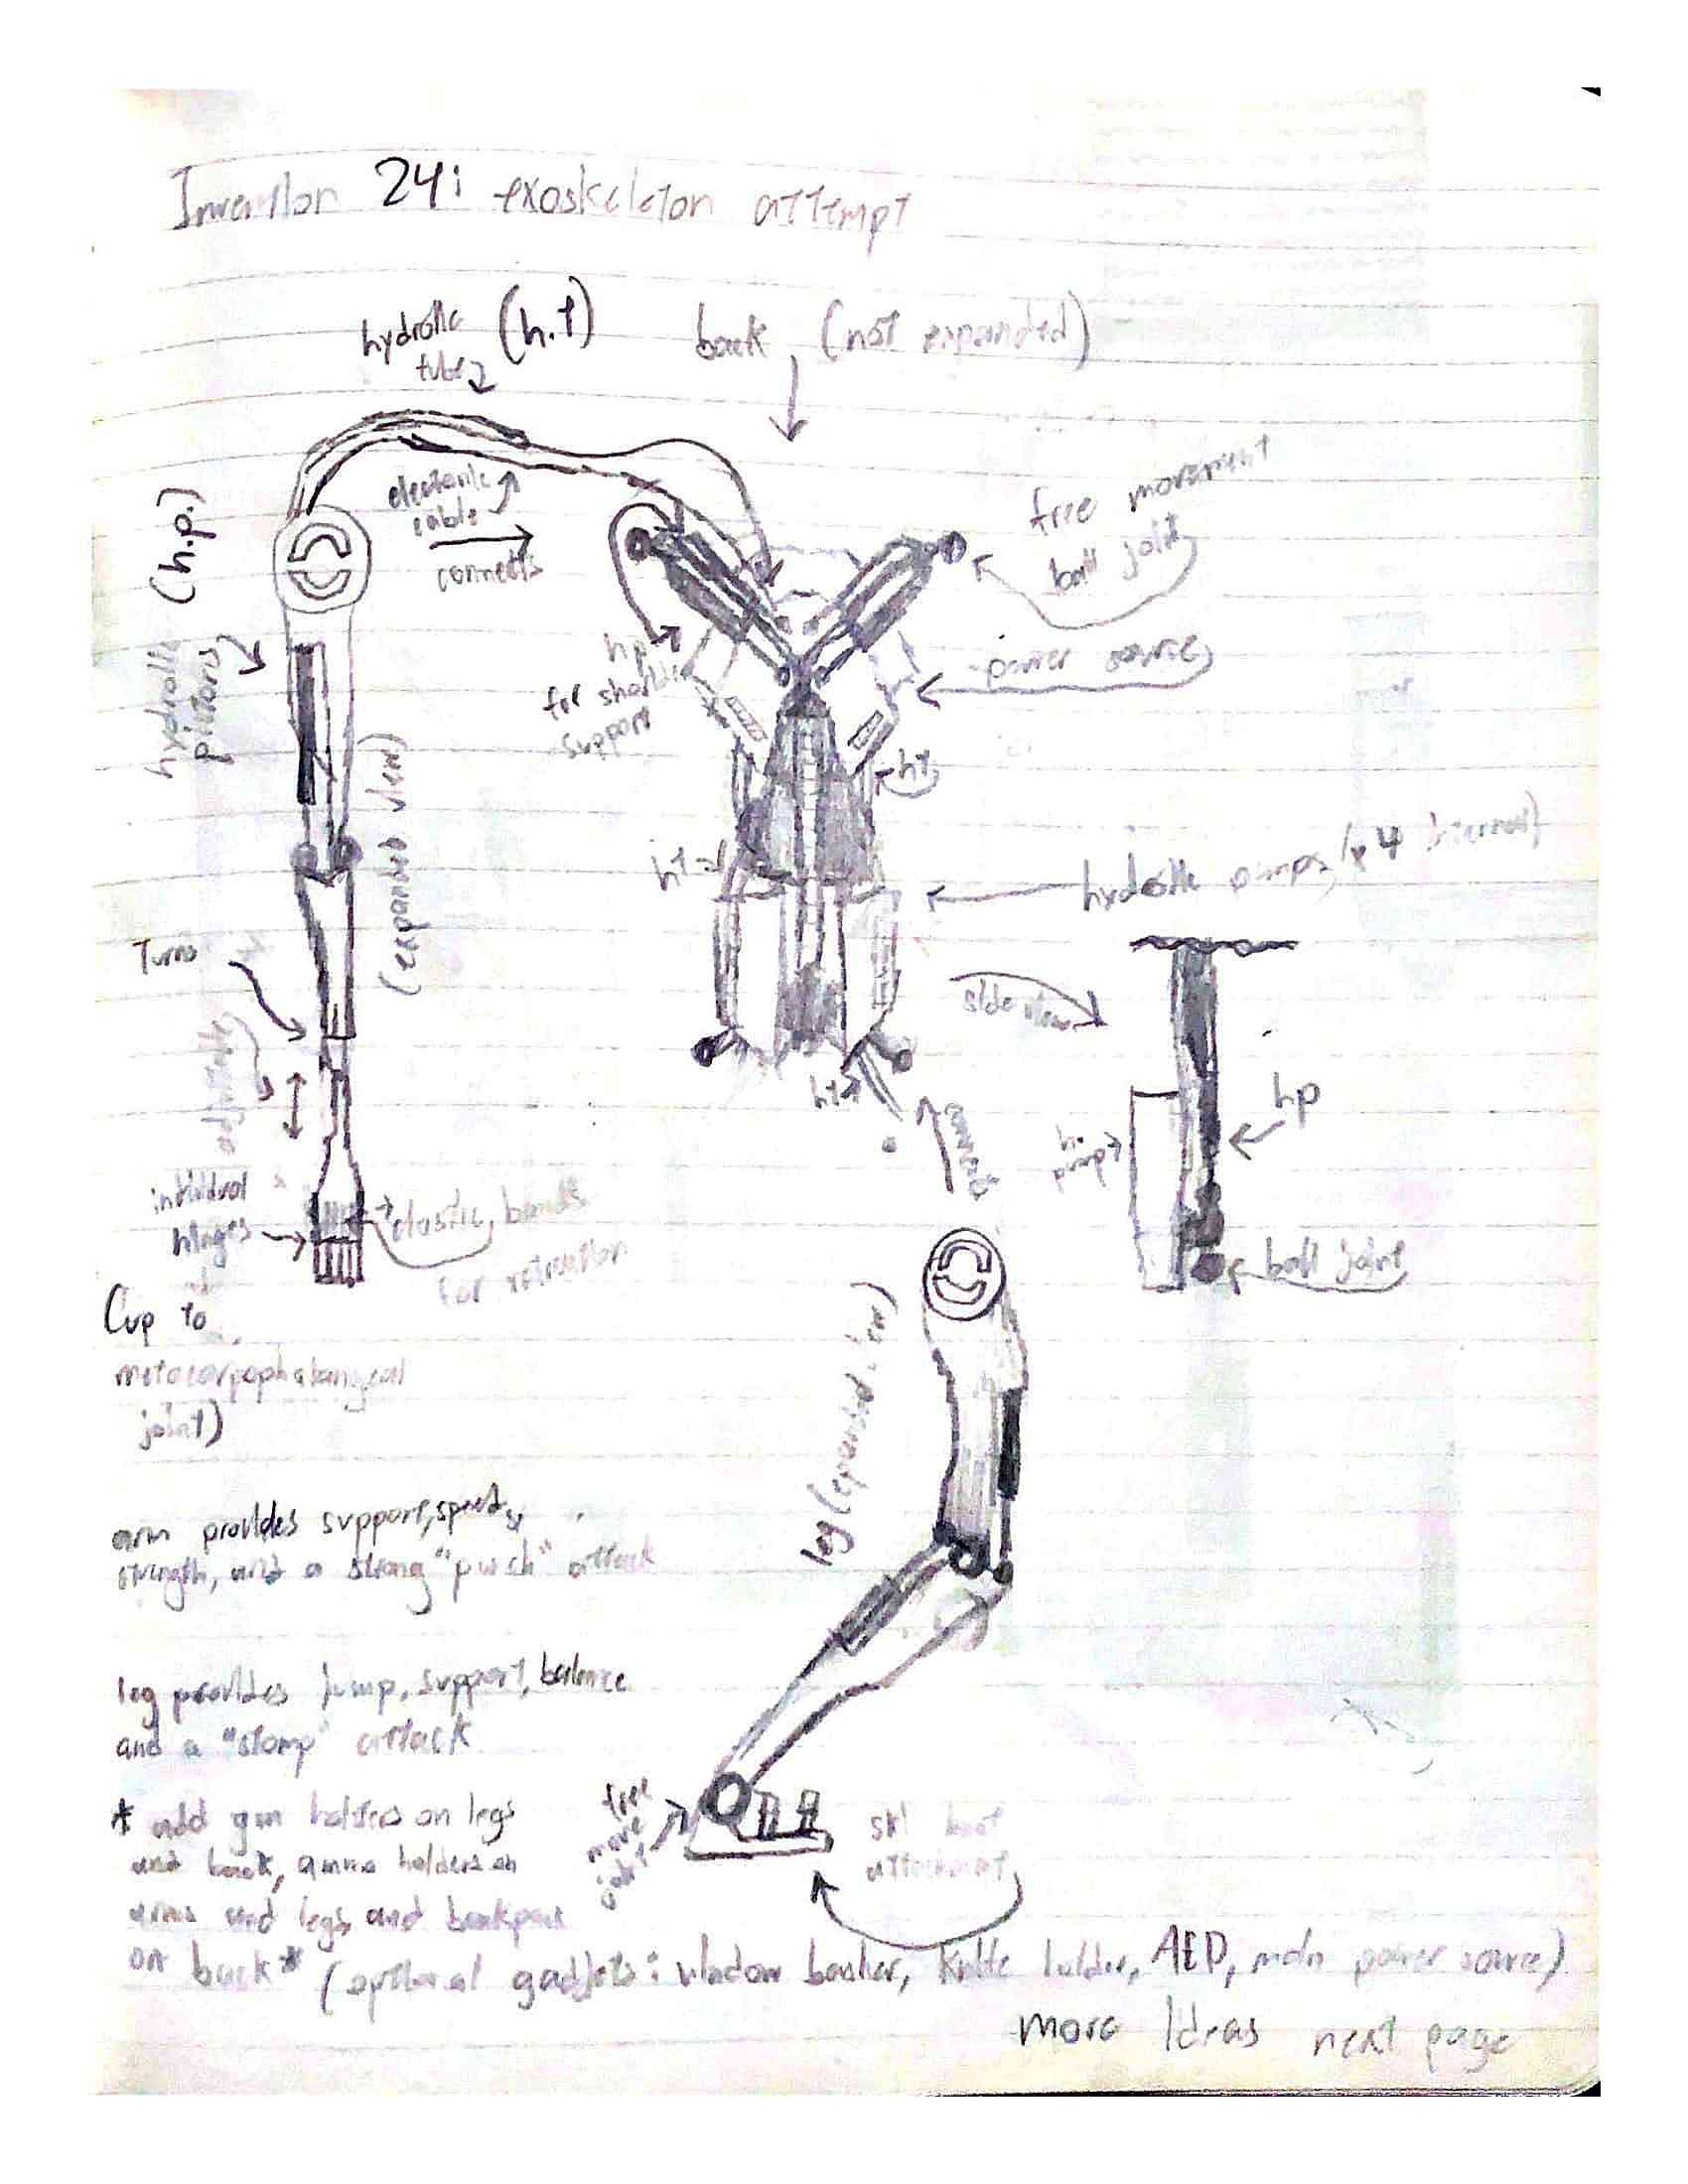 Invention 24: exoskeleton attempt
hydrolic (h.t)
tube
back (not expanded)
electronic
cable
connects
free movement
ball joint
(h.p.)
hydrolic
pistons
hp
for shoulder
support
power source
(expanded view)
ht
ht
hydrolic pumps (x4 internal)
Turns
adjustable
side view
ht
connects
h.
pump
hp
ball joint
individual
hinges
elastic bands
for retraction
(up to
metacarpophalangeal
joint)
leg (expanded view)
arm provides support, speed,
strength, and a strong "punch" attack
leg provides jump, support, balance
and a "stomp" attack
* add gun holders on legs
and back, ammo holders on
arms and legs, and backpack
on back* (optional gadgets: window breaker, knife holder, AED, main power source)
free
move
joint
ski boot
attachment
more Ideas next page